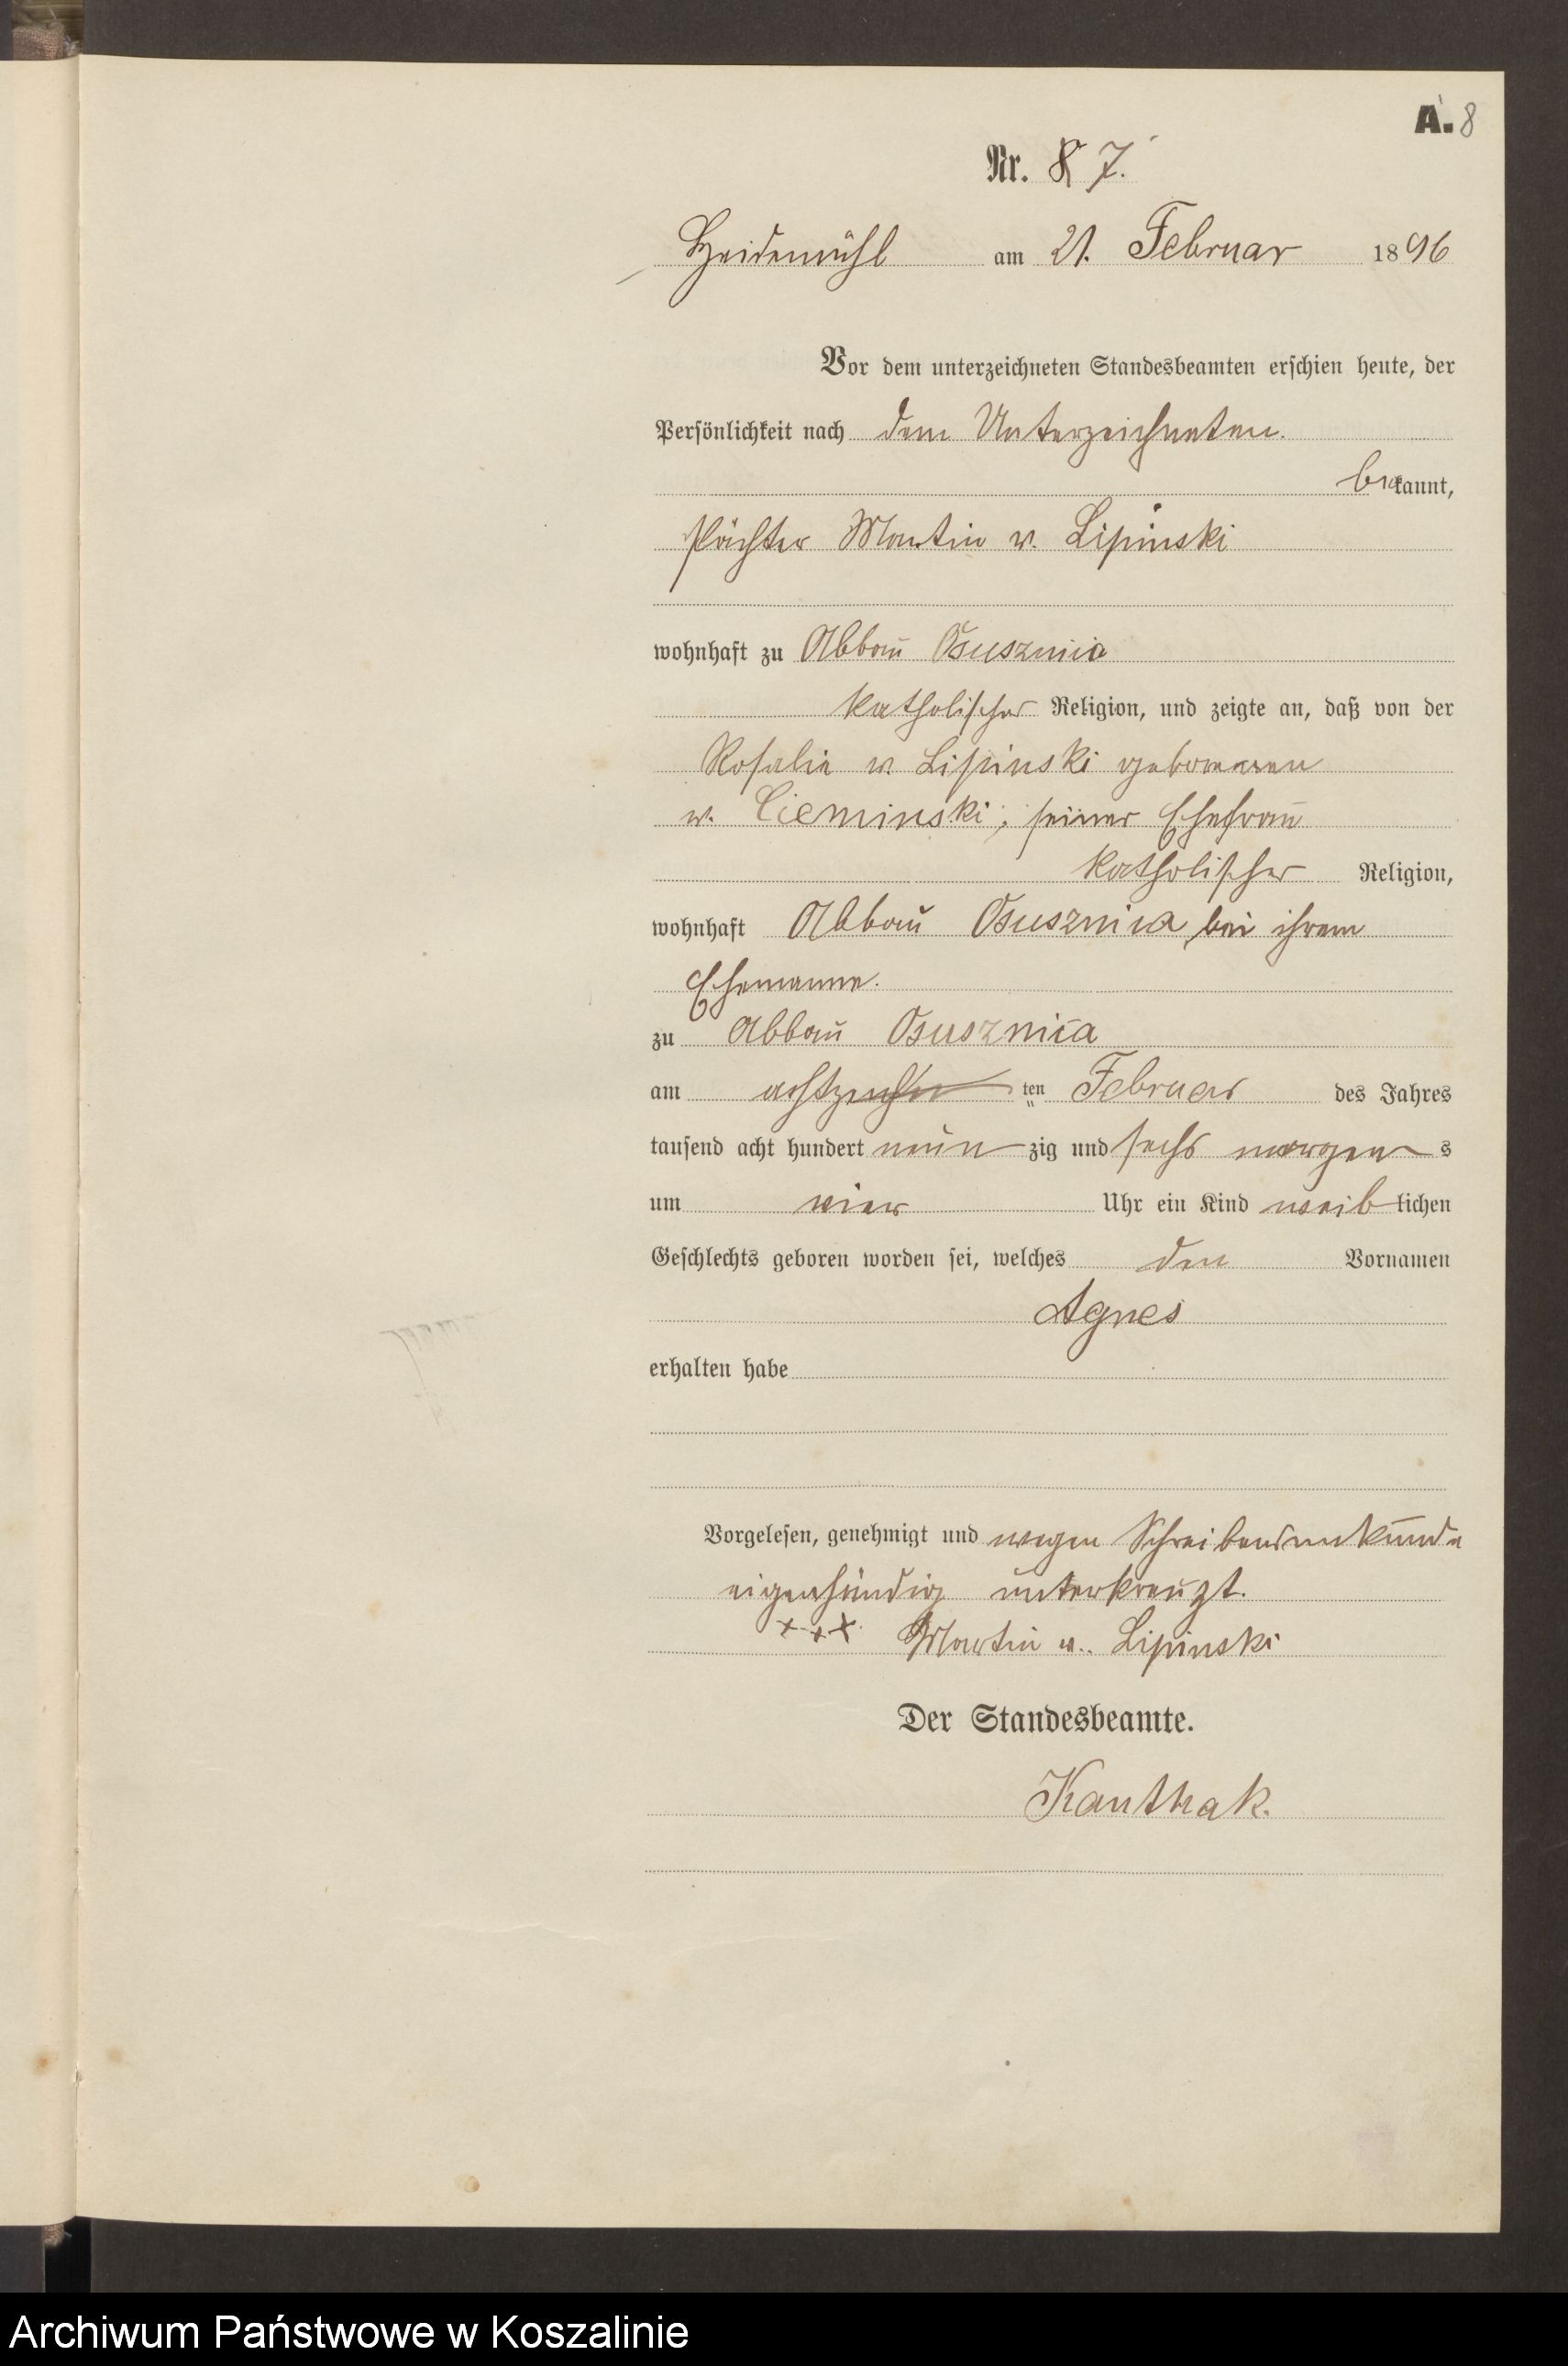 A. 8
Nr. 8 7.
Heidemühl am 21. Februar 1896
Vor dem unterzeichneten Standesbeamten erschien heute, der
Persönlichkeit nach dem Unterzeichneten.
bekannt,
Pächter Martin v. Lipinski
wohnhaft zu Abbau Osusznica
katholischer Religion, und zeigte an, daß von der
Rosalie v. Lipinski geborenen
v. Cieminski, seiner Ehefrau
katholischer Religion,
wohnhaft Abbau Osusznica bei ihrem
Ehemanne.
zu Abbau Osusznica
am achtzehn ten Februar des Jahres
tausend acht hundert neun zig und sechs morgens
um vier Uhr ein Kind weiblichen
Geschlechts geboren worden sei, welches den Vornamen
Agnes
erhalten habe
Vorgelesen, genehmigt und wegen Schreibensunkunde
eigenhändig unterkreuzt.
+++ Martin v. Lipinski
Der Standesbeamte.
Kanthak.
Archiwum Państwowe w Koszalinie